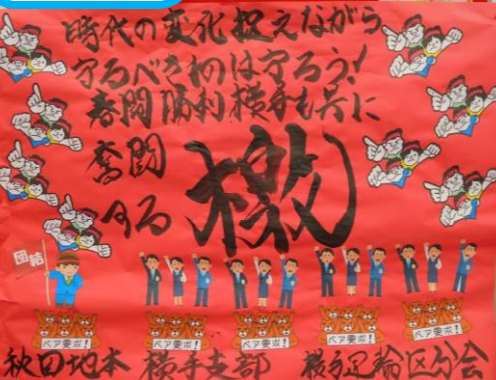 時代の変化捉えながら
守るべきものは守ろう!
春闘勝利横手も共に
奮闘
する
檄
団結
ベア要求!
ベア要求!
ベア要求!
ベア要求!
ベア要求!
秋田地本 横手支部 横手運輸区分会